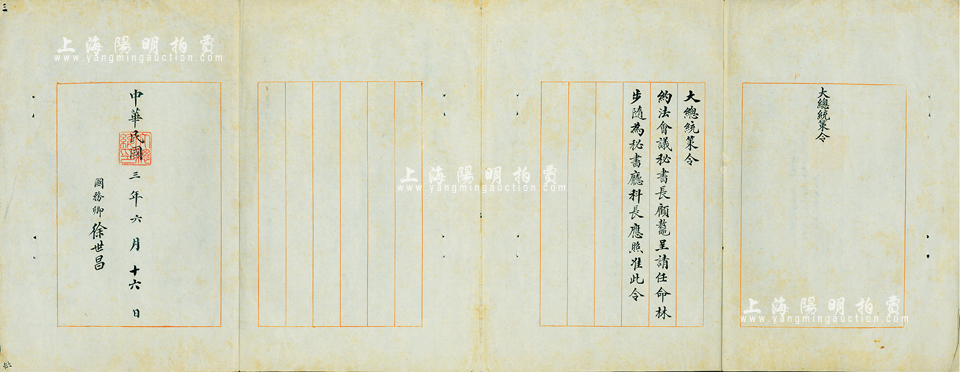 大總統策令
大總統策令
約法會議秘書長顧鼇呈請任命林
步隨為秘書廳科長應照准此令
中華民國三年六月十六日
國務卿徐世昌
上海陽明拍賣
www.yangmingauction.com
上海陽明拍賣
www.yangmingauction.com
上海陽明拍賣
www.yangmingauction.com
三